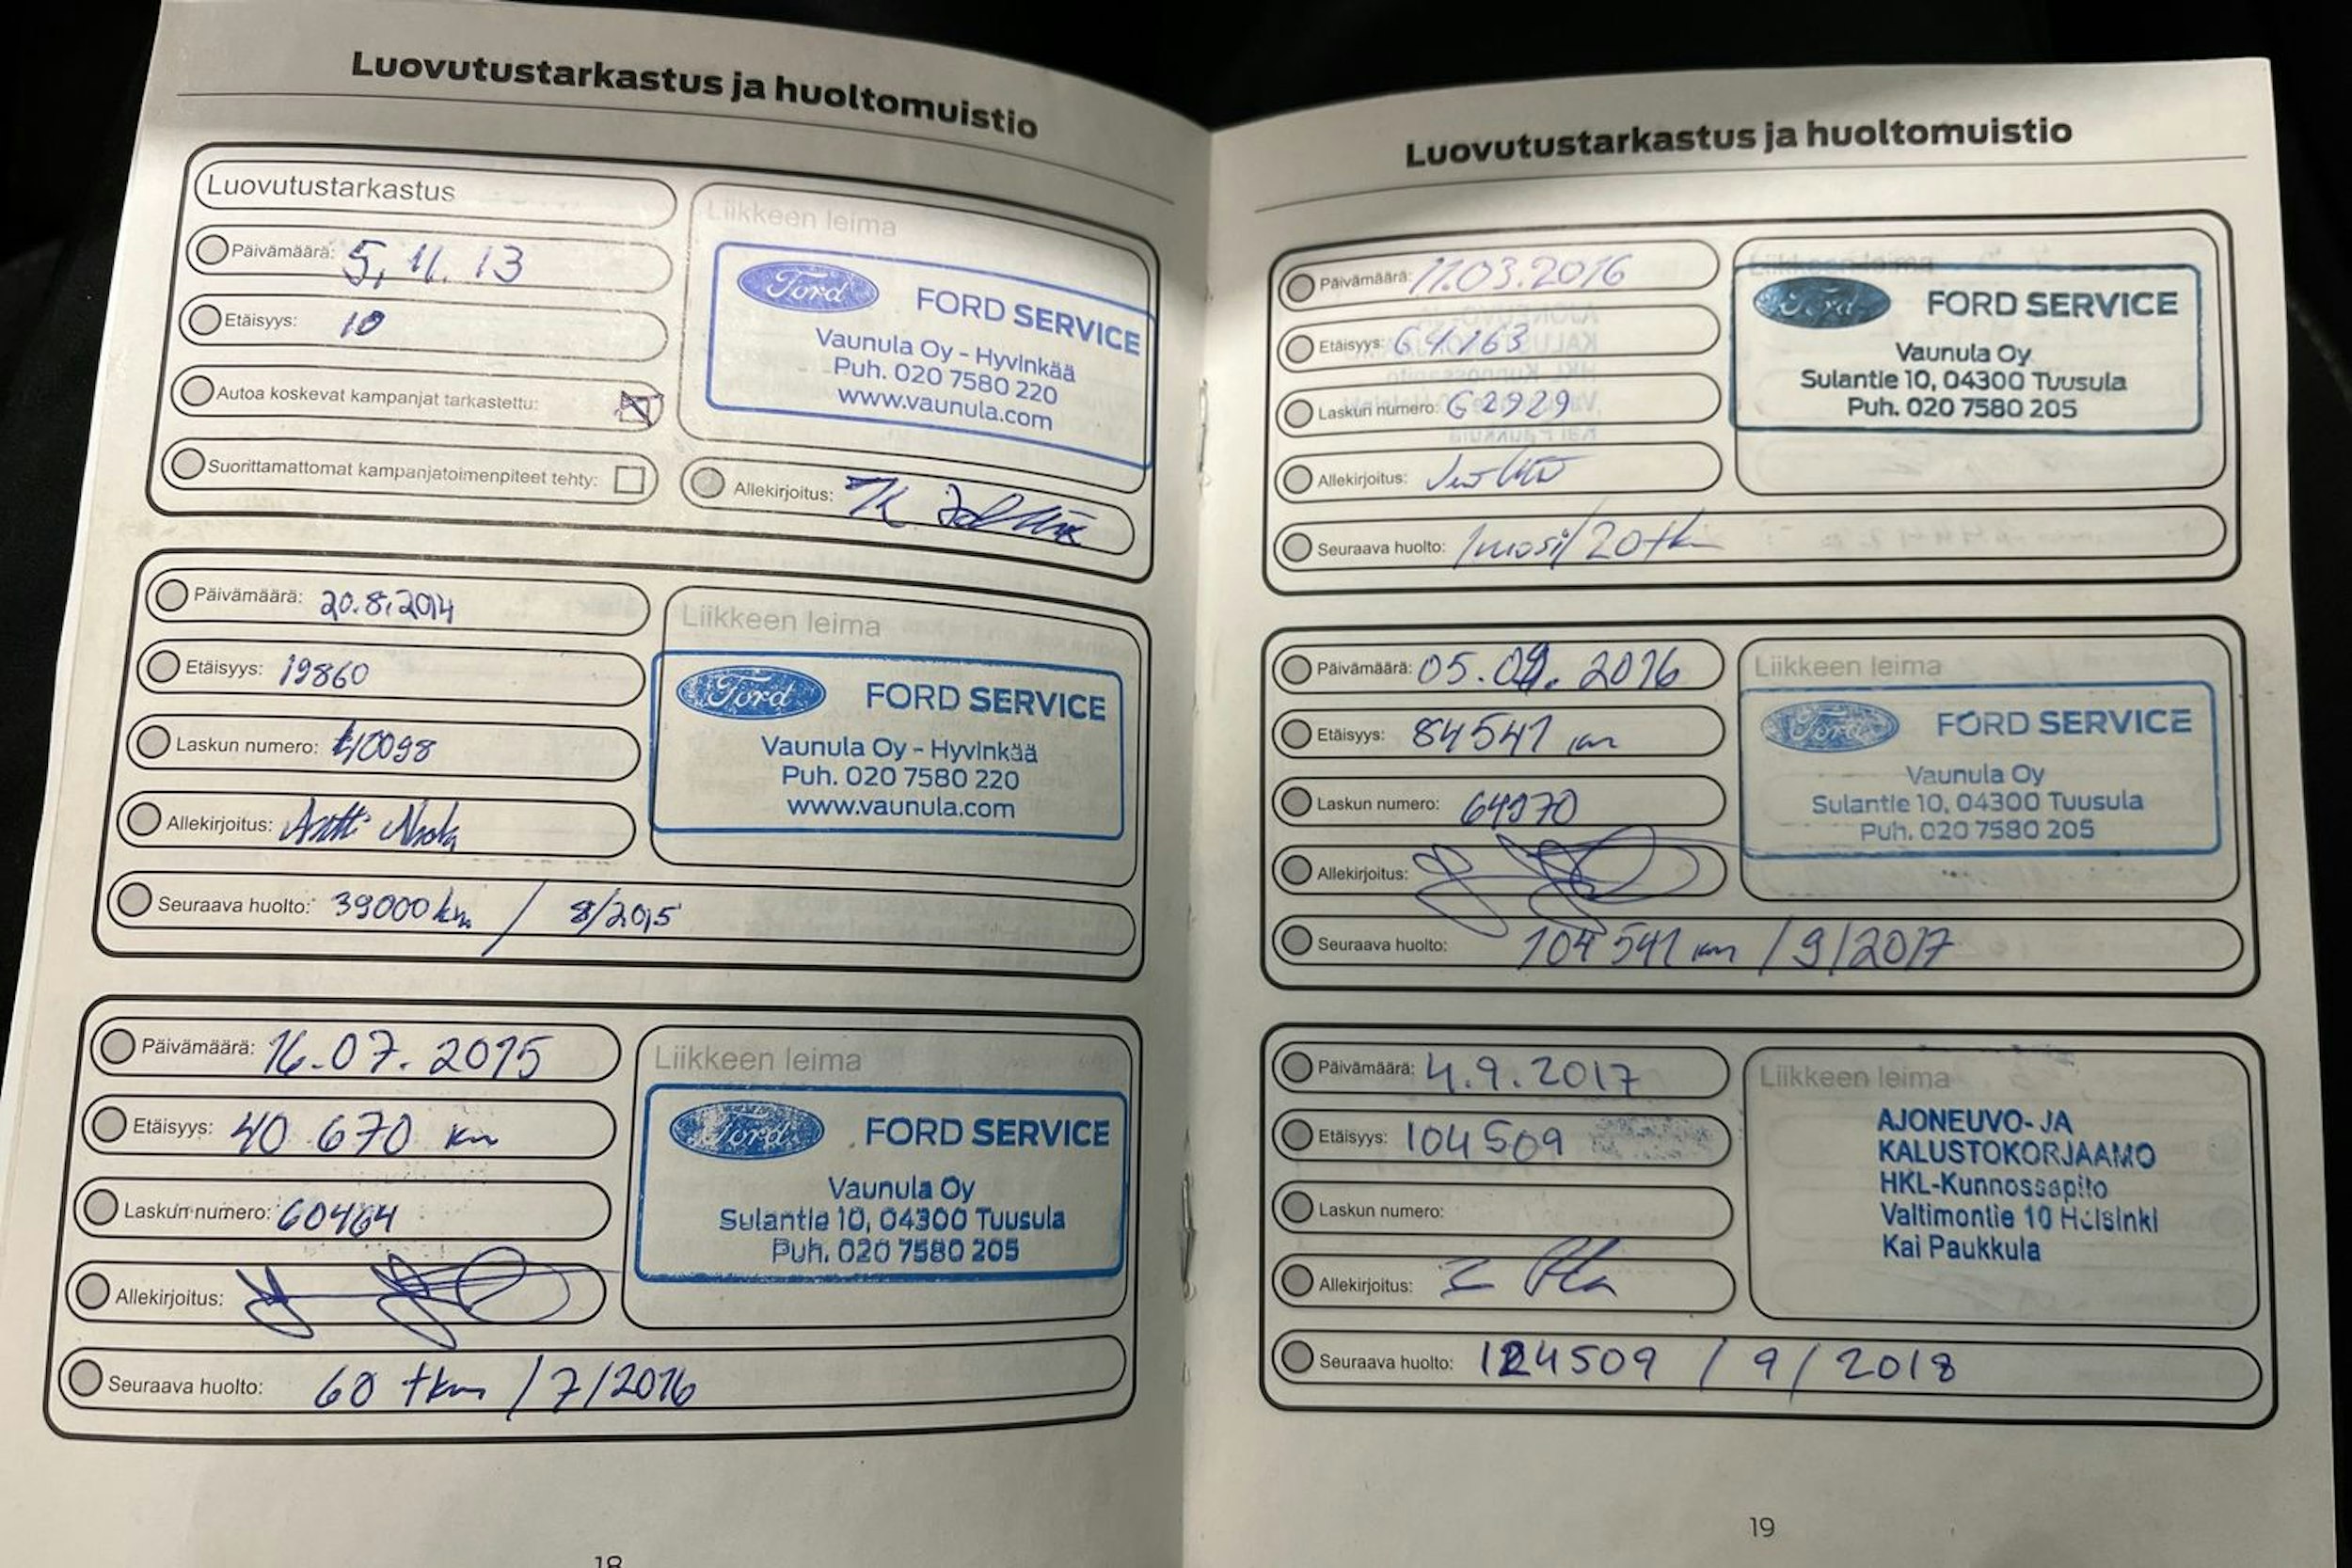 Luovutustarkastus ja huoltomuistio
Luovutustarkastus
Päivämäärä: 5.11.13
Etäisyys: 10
Autoa koskevat kampanjat tarkastettu:
Suorittamattomat kampanjatoimenpiteet tehty:
Liikkeen leima
Ford FORD SERVICE
Vaunula Oy - Hyvinkää
Puh. 020 7580 220
www.vaunula.com
Allekirjoitus:
Päivämäärä: 20.8.2014
Etäisyys: 19860
Laskun numero: 40098
Allekirjoitus: Antti
Liikkeen leima
Ford FORD SERVICE
Vaunula Oy - Hyvinkää
Puh. 020 7580 220
www.vaunula.com
Seuraava huolto: 39000 km / 8/2015
Päivämäärä: 16.07.2015
Etäisyys: 40 670 km
Laskun numero: 60464
Allekirjoitus:
Liikkeen leima
Ford FORD SERVICE
Vaunula Oy
Sulantie 10, 04300 Tuusula
Puh. 020 7580 205
Seuraava huolto: 60 tkm / 7/2016
18
Luovutustarkastus ja huoltomuistio
Päivämäärä: 11.03.2016
Etäisyys: 64163
Laskun numero: 62929
Allekirjoitus:
Liikkeen leima
Ford FORD SERVICE
Vaunula Oy
Sulantie 10, 04300 Tuusula
Puh. 020 7580 205
Seuraava huolto: 1 vuosi/20 tkm
Päivämäärä: 05.09.2016
Etäisyys: 84541 km
Laskun numero: 64970
Allekirjoitus:
Liikkeen leima
Ford FORD SERVICE
Vaunula Oy
Sulantie 10, 04300 Tuusula
Puh. 020 7580 205
Seuraava huolto: 104 541 km / 9/2017
Päivämäärä: 4.9.2017
Etäisyys: 104509
Laskun numero:
Allekirjoitus:
Liikkeen leima
AJONEUVO- JA
KALUSTOKORJAAMO
HKL-Kunnossapito
Valtimontie 10 Helsinki
Kai Paukkula
Seuraava huolto: 124509 / 9 / 2018
19